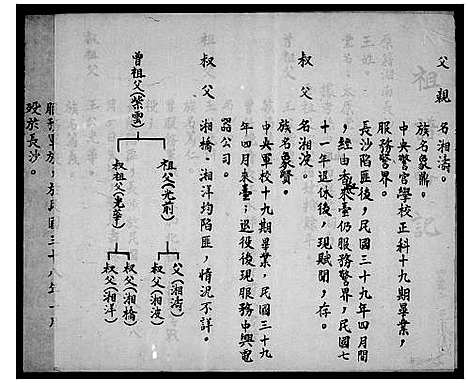 父親 名湘濤。
族名象鼎。
中央警官學校正科十九期畢業,
服務警界。
長沙陷匪後,民國三十九年四月間
,經由香來臺仍服務警界,民國七
十一年退休後,現賦閒,存。
叔父 名湘波。
族名象賢。
中央軍校十九期畢業,民國三十九
年四月來臺;退役後現服務中興電
器公司。
叔父 湘橋、湘洋均陷匪,情況不詳。
曾祖父(紫雲)
祖父(光前)
父(湘濤)
叔父(湘波)
叔祖父(光華)
叔父(湘橋)
叔父(湘洋)
歿於長沙。